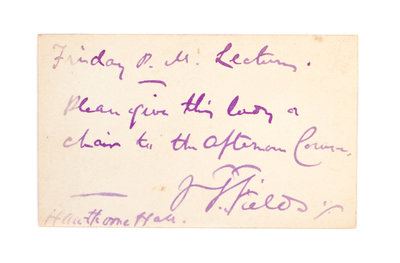 Friday P. M. Lectures.
Please give this lady a
chair to the Afternoon Course.
J. T. Fields
Hawthorne Hall.